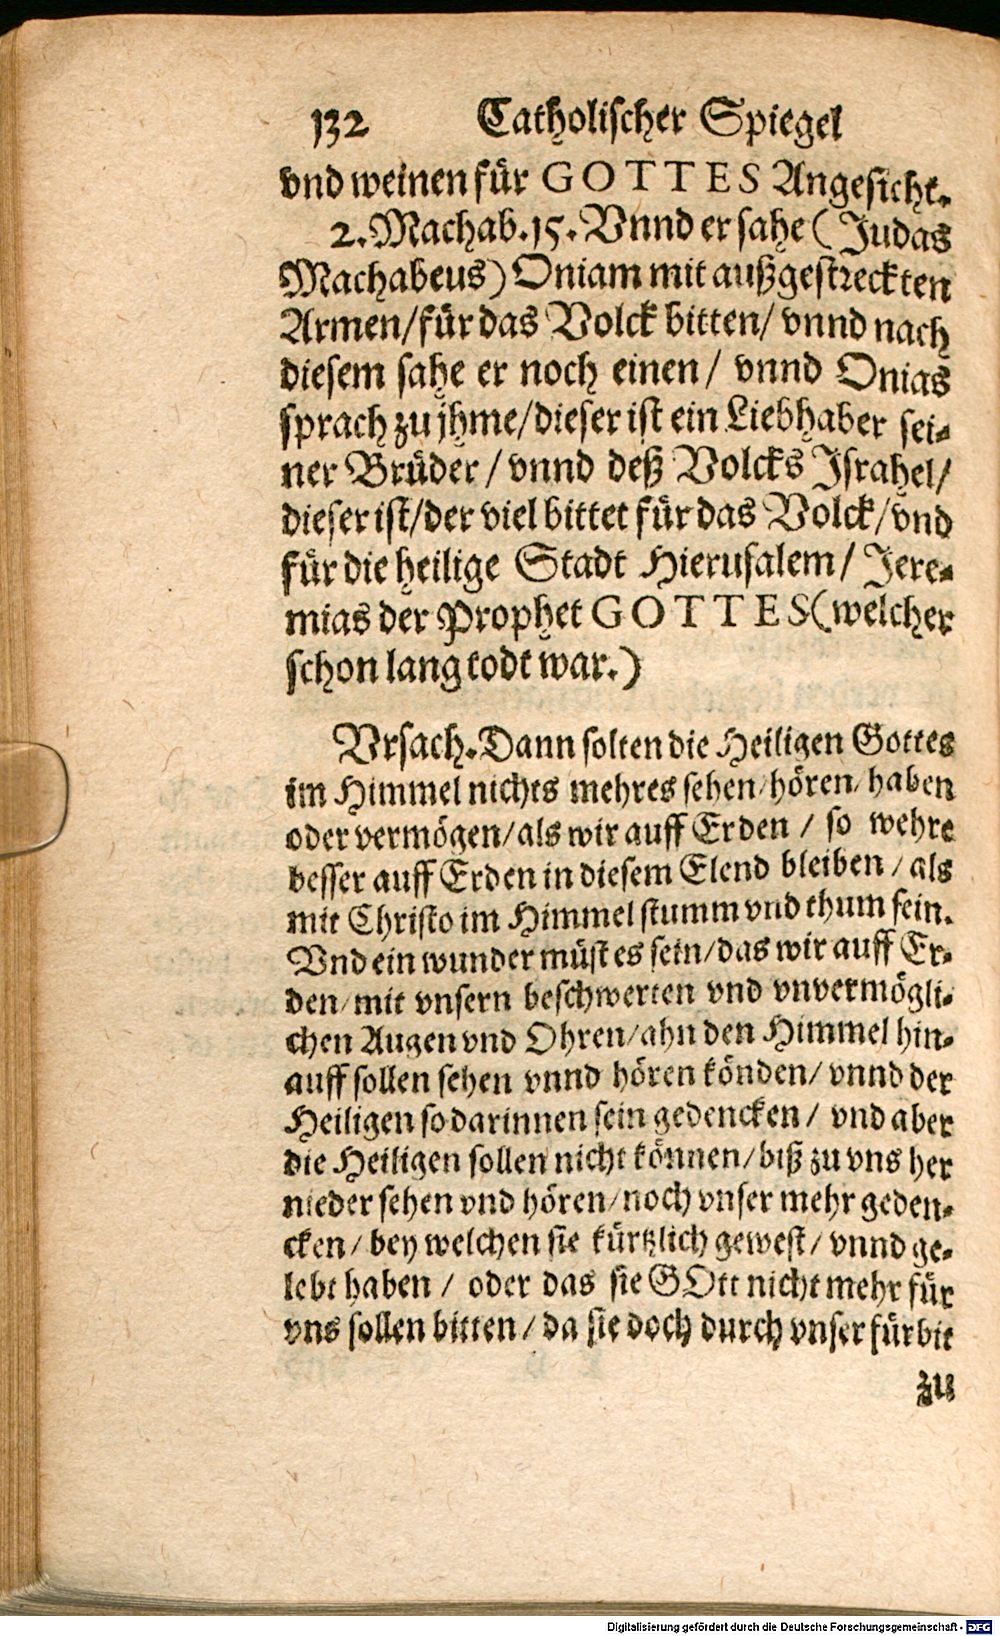 132 Catholischer Spiegel
vnd weinen für GOTTES Angesicht.
2. Machab. 15. Vnnd er sahe (Judas
Machabeus) Oniam mit außgestreckten
Armen/ für das Volck bitten/ vnnd nach
diesem sahe er noch einen / vnnd Onias
sprach zu jhme/ dieser ist ein Liebhaber sei-
ner Brüder / vnnd deß Volcks Israhel/
dieser ist/ der viel bittet für das Volck/ vnd
für die heilige Stadt Hierusalem / Jere-
mias der Prophet GOTTES (welcher
schon lang todt war.)
Vrsach. Dann solten die Heiligen Gottes
im Himmel nichts mehres sehen/ hören/ haben
oder vermögen/ als wir auff Erden / so wehre
besser auff Erden in diesem Elend bleiben / als
mit Christo im Himmel stumm vnd thum sein.
Vnd ein wunder müst es sein/ das wir auff Er-
den/ mit vnsern beschwerten vnd vnvermögli-
chen Augen vnd Ohren/ ahn den Himmel hin-
auff sollen sehen vnnd hören könden/ vnnd der
Heiligen so darinnen sein gedencken / vnd aber
die Heiligen sollen nicht können/ biß zu vns her
nieder sehen vnd hören/ noch vnser mehr geden-
cken / bey welchen sie kürtzlich gewest / vnnd ge-
lebt haben / oder das sie GOtt nicht mehr für
vns sollen bitten / da sie doch durch vnser fürbit
zu
Digitalisierung gefördert durch die Deutsche Forschungsgemeinschaft - DFG